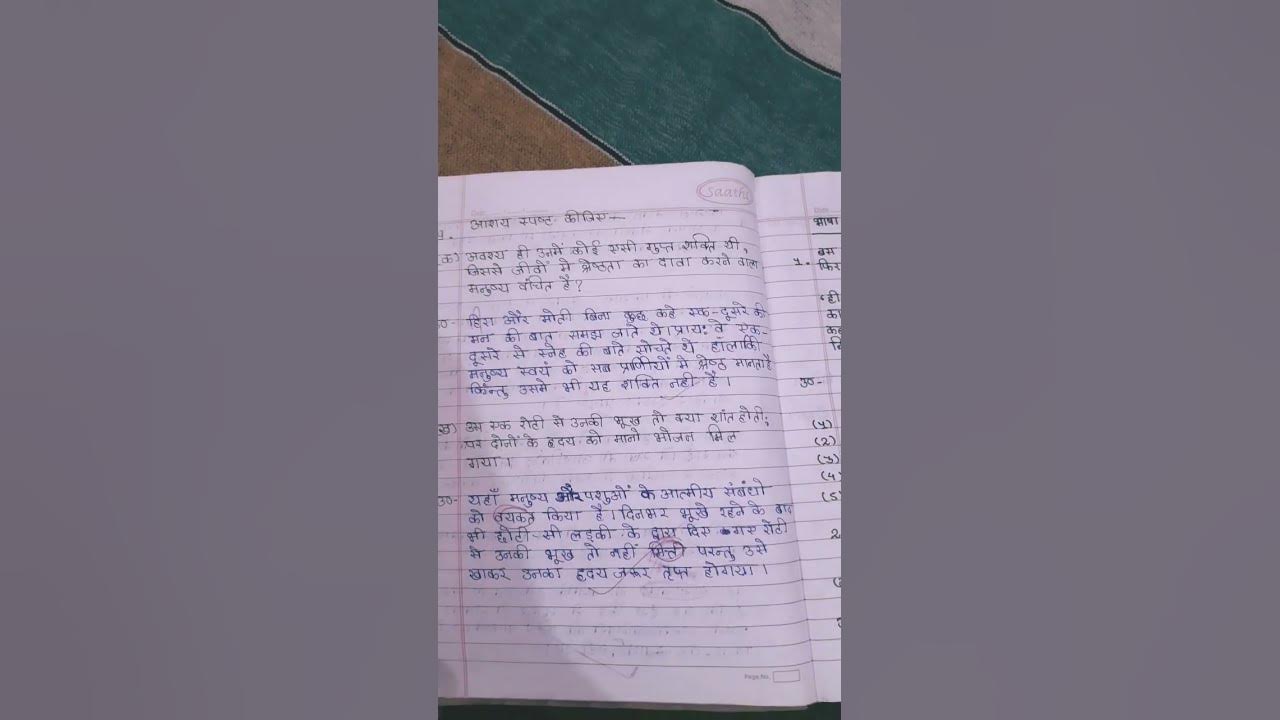 Saathi
आशय स्पष्ट कीजिए—
क) अवश्य ही उनमें कोई एसी गुप्त शक्ति थी,
जिससे जीवों मे श्रेष्ठता का दावा करने वाला
मनुष्य वंचित है?
उ०- हिरा और मोती बिना कुछ कहे एक-दूसरे की
मन की बात समझ जाते थे। प्राय: वे एक-
दूसरे से स्नेह की बाते सोचते थे हाँलाकि
मनुष्य स्वयं को सब प्राणियों मे श्रेष्ठ मानता है
किन्तु उसमे भी यह शक्ति नही है।
ख) उस एक रोटी से उनकी भूख तो क्या शांत होती;
पर दोनों के ह्रदय को मानो भोजन मिल
गया।
उ०- यहाँ मनुष्य और पशुओं के आत्मीय संबंधो
को वयकत किया है। दिनभर भूखे रहने के बाद
भी छोटी सी लड़की के द्वारा दिए गए रोटी
से उनकी भूख तो नहीं परन्तु उसे
खाकर उनका ह्रदय जरूर तृप्त होगया।
Page No.
भाषा
1. बस
फिर
उ०-
(1)
(2)
(3)
(4)
(5)
2